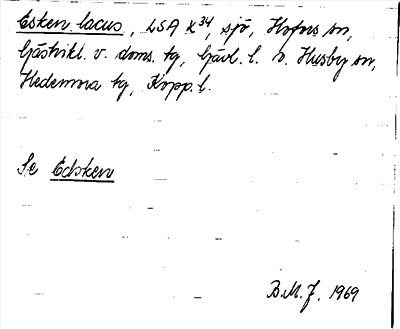 Esken lacus, LSA X 34, sjö, Hofors sn,
Gästrikl. v. doms. tg, Gävl. l. o. Husby sn,
Hedemora tg, Kopp. l.
Se Edsken
B.M.J. 1969